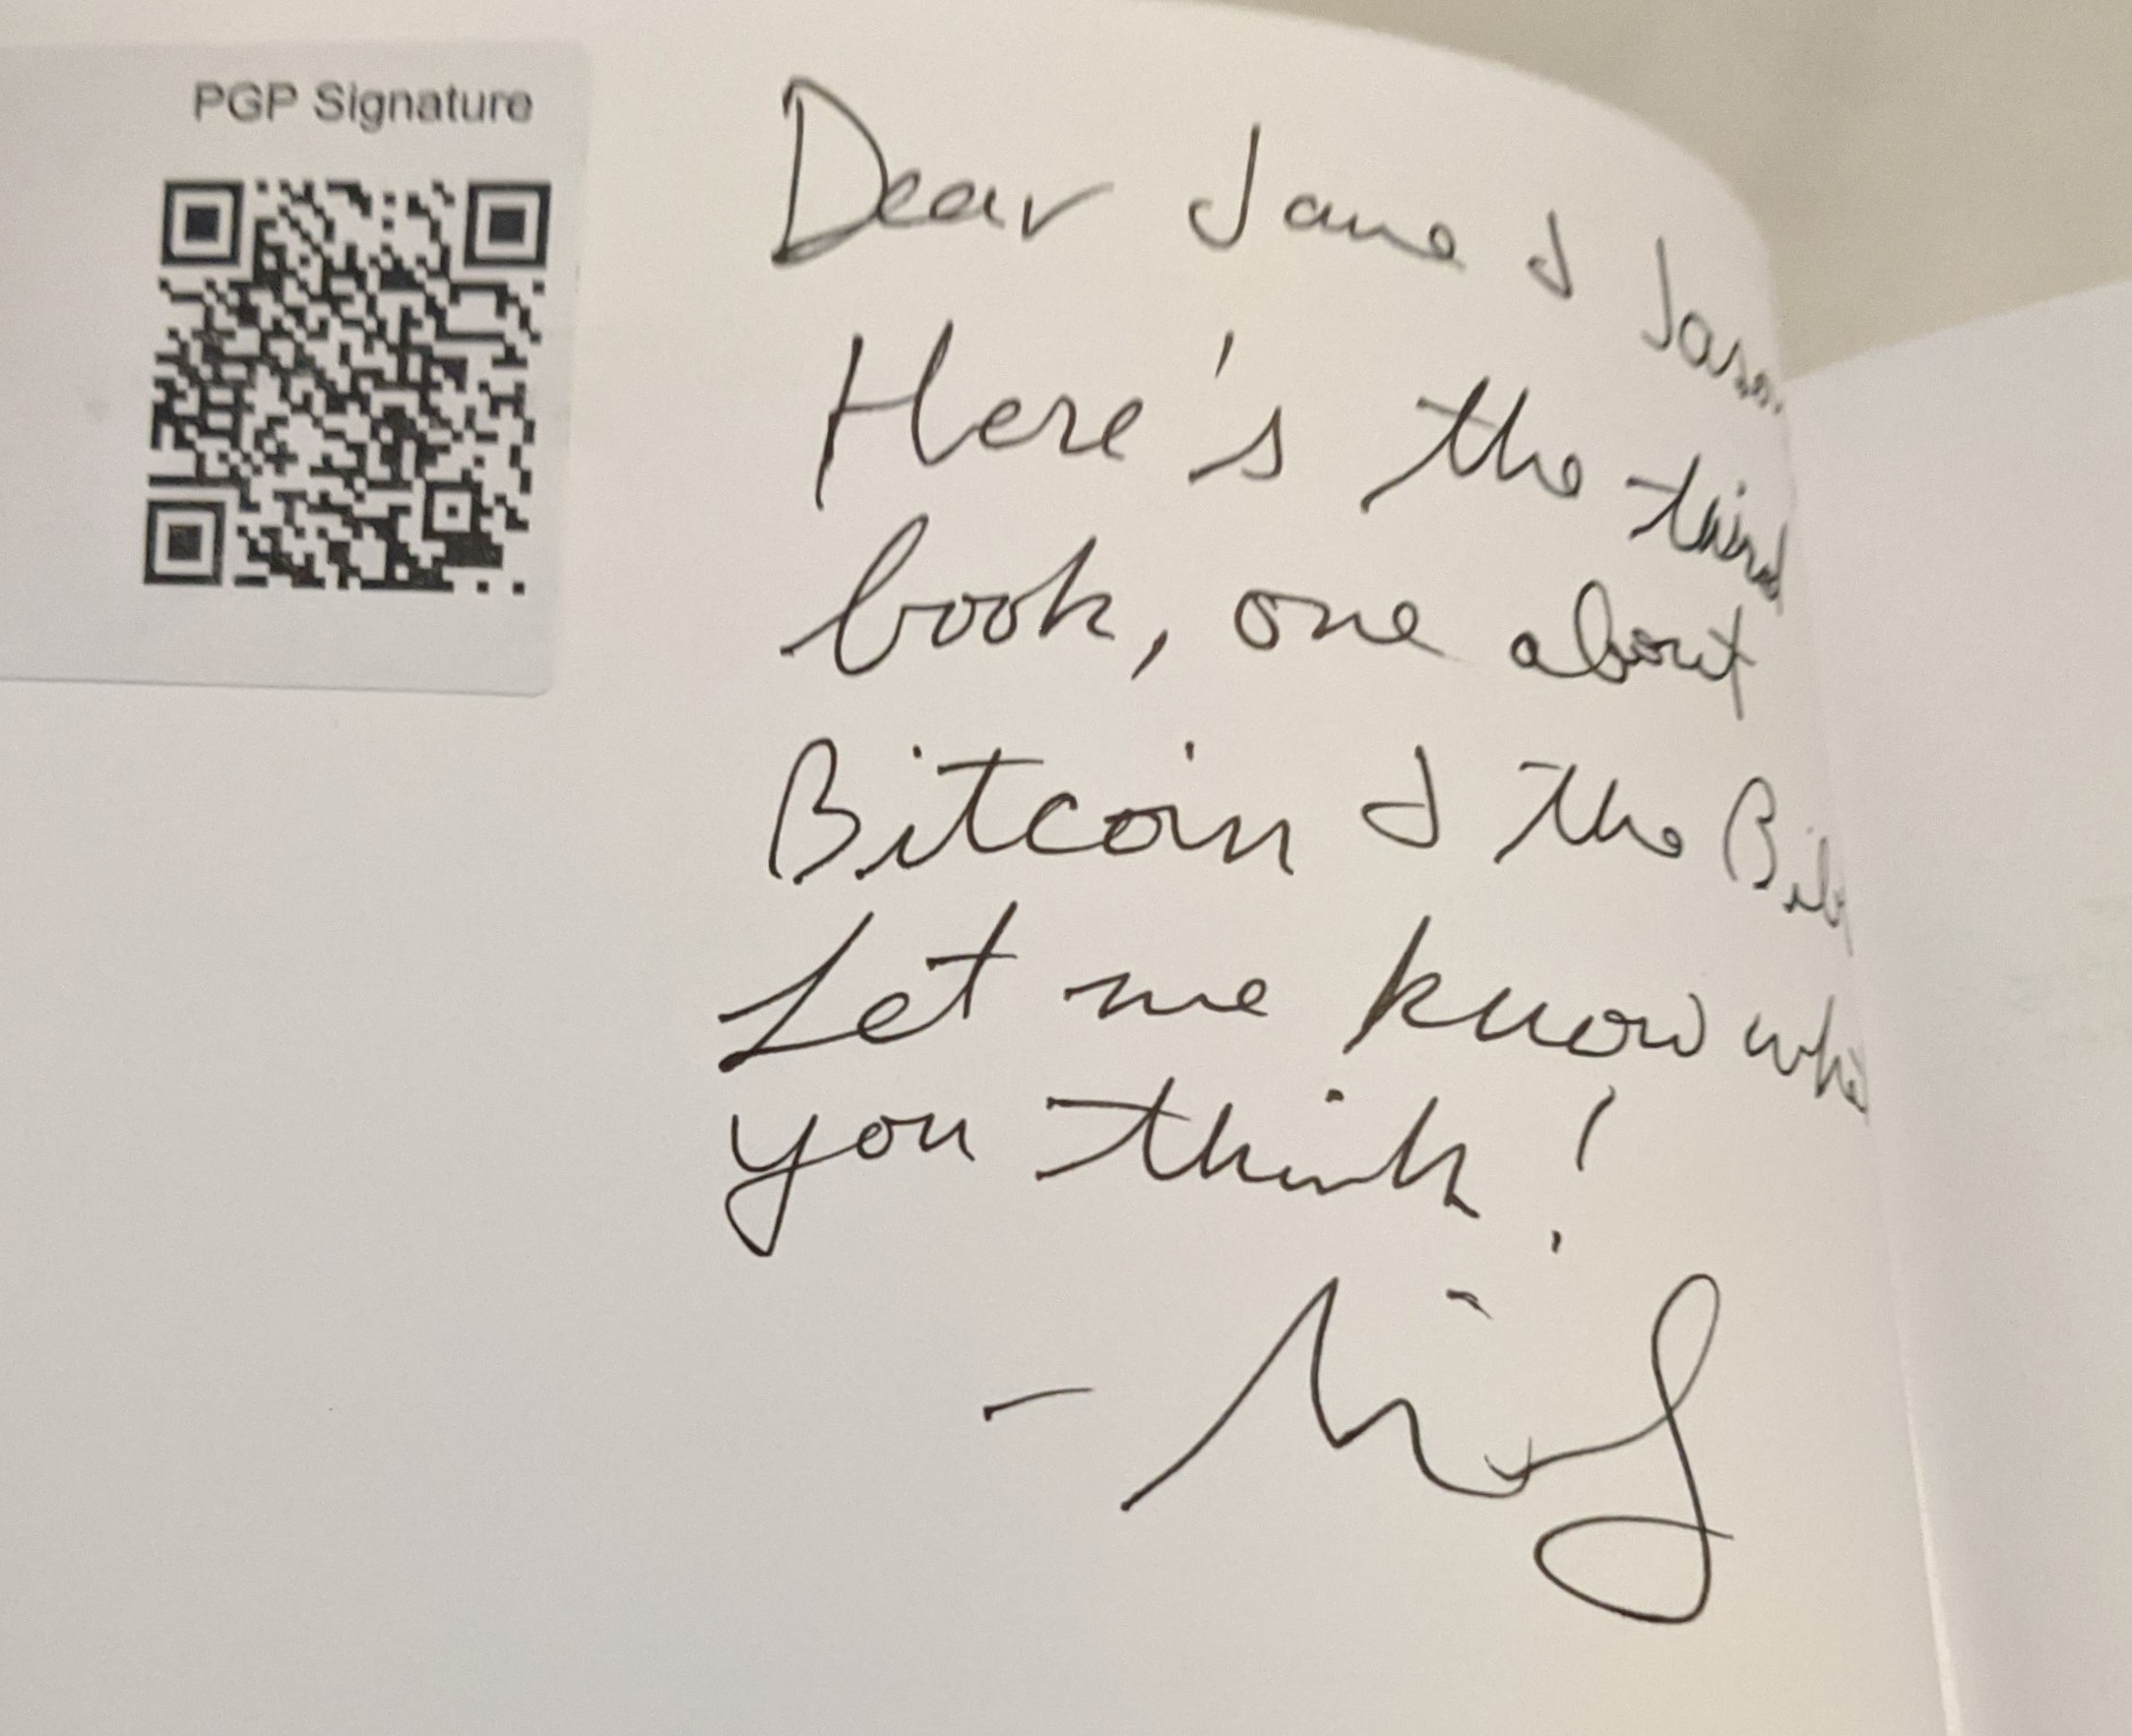 PGP Signature
Dear Jane &
Here's the third
book, one about
Bitcoin & the
Let me know
you think!